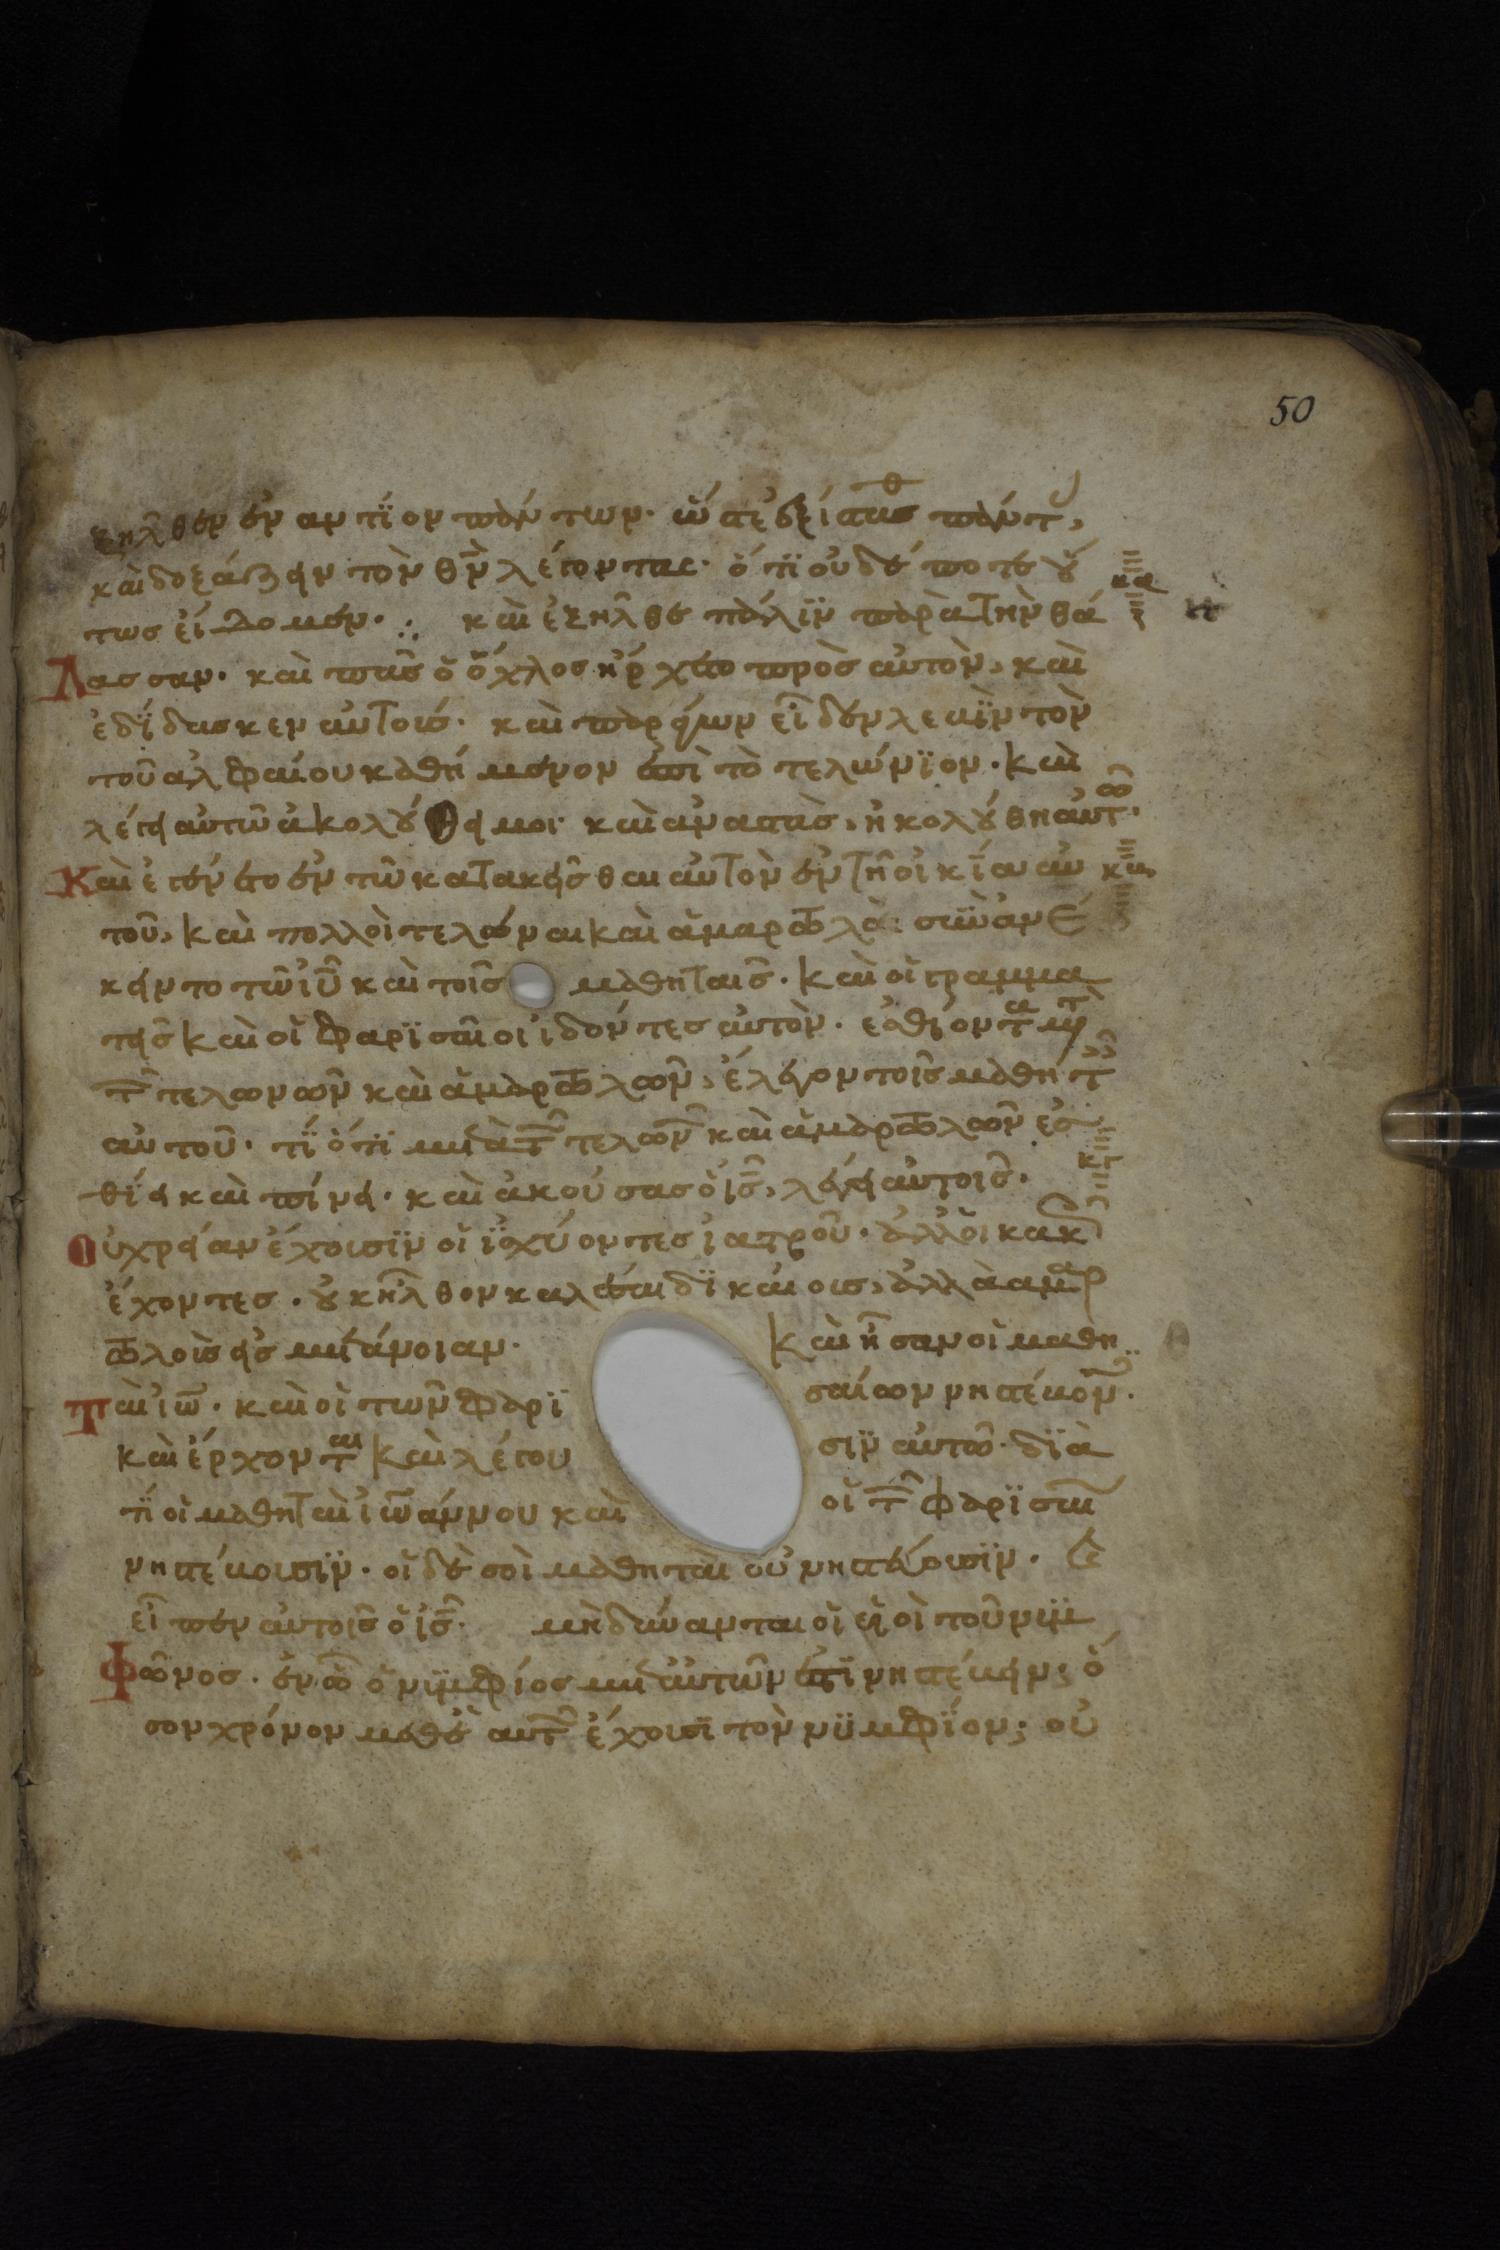 50
ξηλθεν εναντϊον πάντων· ὥστε ἐξίστασθ πάντ,
καὶ δοξάζειν τὸν θν̀ λέγοντας· ὅτϊ οὐδέποτε ȣ́
τως εἴδομεν· ∴ καὶ ἐξηλθε πάλϊν παρὰ τὴν θά
κα
λασσαν· καὶ πας ὁ ὄχλος ἤρχετο προς αὐτὸν, καὶ
ἐδΐδασκεν αὐτοις· καὶ παράγων εἶδεν λευῒν τὸν
τοῦ αλφαίου καθήμενον ἐπὶ τὸ τελώνϊον· καὶ
λέγει αὐτῶ ἀκολȣ́θει μοι· καὶ αναστὰς, ἠκολȣ́θη αὐτῶ·
Καὶ ἐγένετο ἐν τῶ κατακεῖσθαι αὐτὸν ἐν τῆ οἰκΐα αὐ
κβ
τοῦ, καὶ πολλοὶ τελώναι καὶ ἁμαρτωλοὶ συνανέ
κειντο τῶ ἰῦ καὶ τοῖς μαθηταις· καὶ οἱ γραμμα
τεῖς καὶ οἱ φαρϊσαῖοι ἰδόντες αὐτὸν· ἐσθίοντα μετὰ
τῶν τελωνῶν καὶ ἁμαρτωλῶν, ἔλεγον τοῖς μαθητ
αὐτοῦ· τΐ ὅτϊ μετὰ τῶν τελωνῶν καὶ ἁμαρτωλῶν ἐσ
κγ
θΐει καὶ πίνει· καὶ ἀκούσας ὁ ἰς, λέγει αὐτοῖς·
Οὐ χρείαν ἔχουσϊν οἱ ἰσχύοντες ἰατροῦ· ἀλλ' οἱ κακῶς
ἔχοντες· ȣκ ἦλθον καλέσαι δϊκαίους, ἀλλὰ αμαρ
τωλοὺς εἰς μετάνοιαν· Καὶ ἦσαν οἱ μαθη
ταὶ ἰω· καὶ οἱ τῶν φαρϊσαίων νηστεύον·
καὶ ἔρχονται καὶ λέγουσϊν αὐτῶ· δϊὰ
τΐ οἱ μαθηταὶ ἰωάννου καὶ οἱ τῶν φαρϊσαι
νηστεύουσϊν· οἱ δὲ σοὶ μαθηταὶ οὐ νηστεύουσϊν· κὲ
εἶπεν αὐτοῖς ὁ ἰς· μὴ δύνανται οἱ υἱοὶ τοῦ νυμ
φῶνος· ἐν ῶ ὁ νυμφίος μετ αὐτῶν ἐστϊ νηστεύειν; ὅ
σον χρόνον μεθ' ἑαυτῶν ἔχουσϊ τὸν νυμφΐον; οὐ